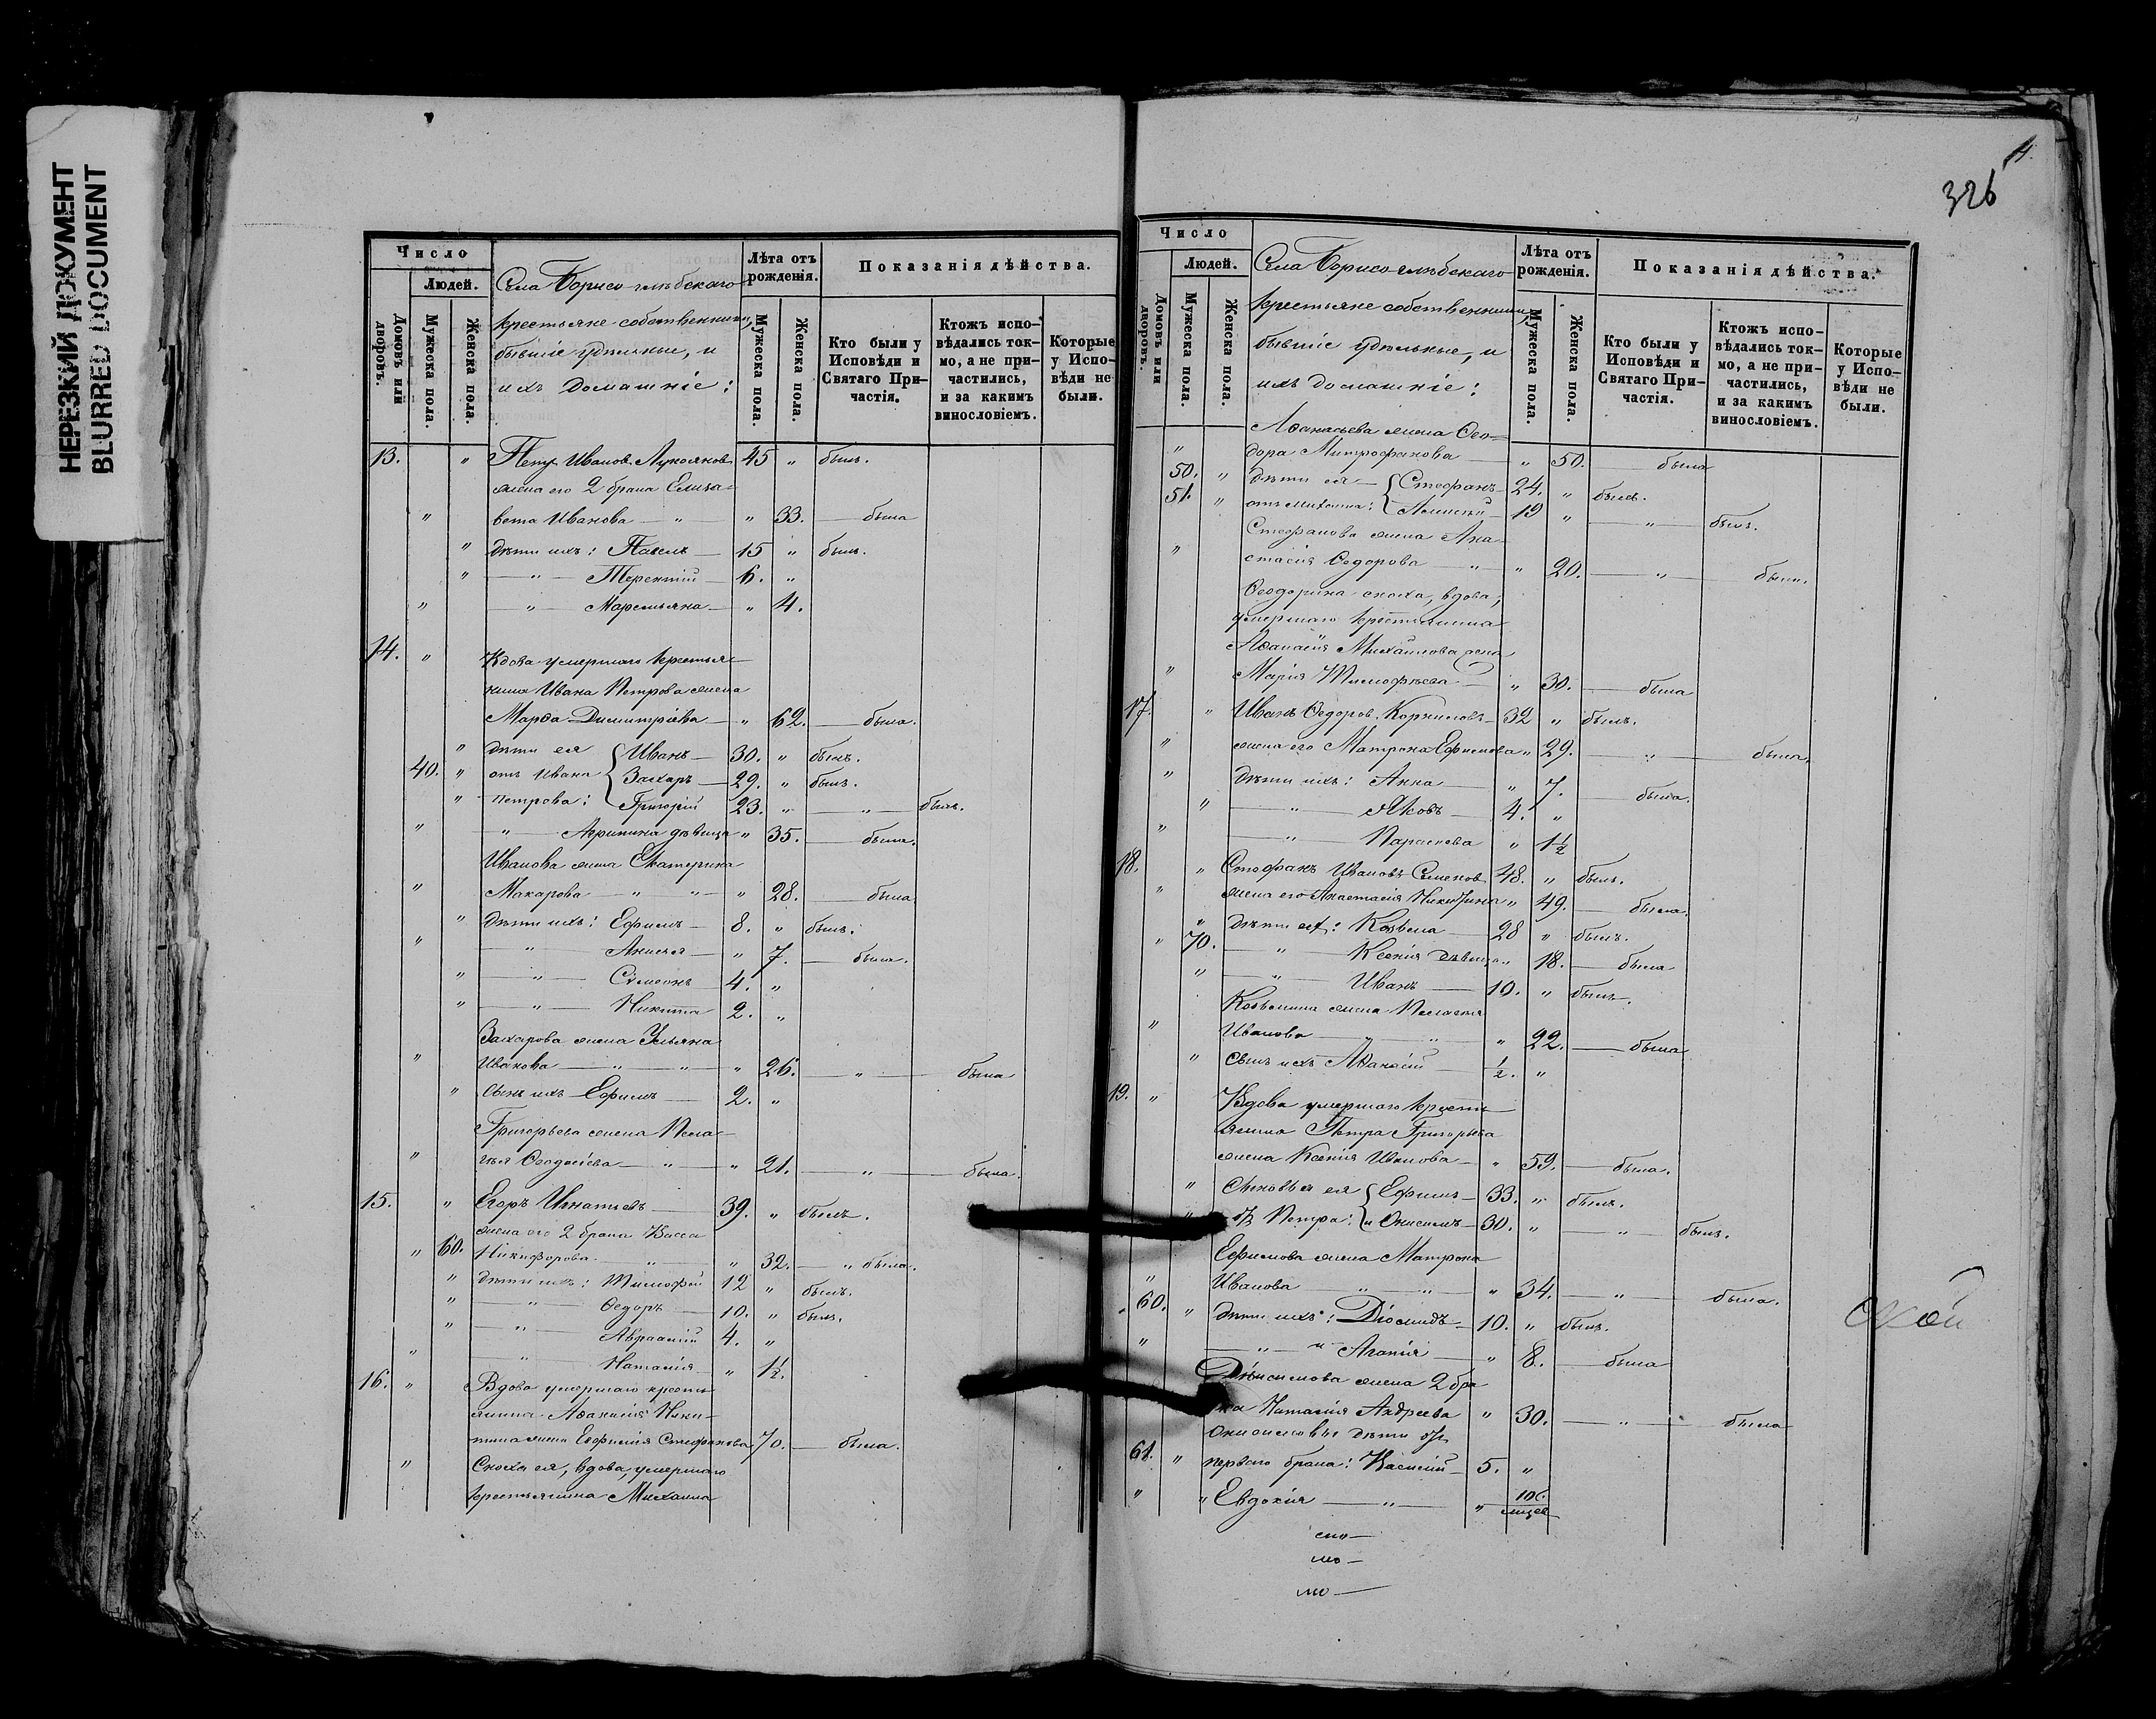 НЕРЕЗКИЙ ДОКУМЕНТ
BLURRED DOCUMENT
Число
Людей.
Домовъ или дворовъ.
Мужеска пола.
Женска пола.
Села Борисо-глѣбскаго
крестьяне собственники,
бывшіе удѣльные, и
ихъ домашніе:
Лѣта отъ рожденія.
Мужеска пола.
Женска пола.
Показанія дѣйства.
Кто были у Исповѣди и Святаго Причастія.
Ктожъ исповѣдались токмо, а не причастились, и за какимъ винословіемъ.
Которые у Исповѣди не были.
13. " Петръ Ивановъ Лукояновъ 45 " былъ.
жена его 2 брака Елиза-
" вета Иванова — " " 33. — была
" дѣти ихъ: Павелъ — 15 " былъ.
" — " — Терентій — 6. "
" — " — Маремьяна — " 4.
14. " Вдова умершаго крестья-
нина Ивана Петрова жена
Марѳа Димитріева — " 62. — была.
" дѣти ея Иванъ — 30. " былъ.
40. " отъ Ивана Захаръ — 29. " былъ.
" Петрова: Григорій 23. " — " — былъ.
" — " — Агрипина дѣвица " 35. — была.
Иванова жена Екатерина
" Макарова — " — " — " 28. — была
" дѣти ихъ: Ефимъ — 8. " былъ.
" — " — Анисья — " 7. — была.
" — " — Сѵмеонъ — 4. "
" — " — Никита 2. "
Захарова жена Ульяна
" Иванова — " — " — " 26. — " — была
" сынъ ихъ Ефимъ — 2. "
Григорьева жена Пела-
" гѣя Ѳеодосіева — " — " 21. — " — была.
15. " Егоръ Игнатьевъ — 39. " былъ.
жена его 2 брака Васса
" 60. Никифорова — " — " 32. — " была.
" дѣти ихъ: Тимофей 12 " былъ.
" — " — Ѳедоръ — 10. " былъ.
" — " — Авраамій 4. "
" — " — Наталія " 1½.
16. " Вдова умершаго кресть-
янина Аѳанасія Ники-
тина жена Евфимія Стефанова 70. — была.
" Сноха ея, вдова, умершаго
крестьянина Михаила
4.
326
Число
Людей.
Домовъ или дворовъ.
Мужеска пола.
Женска пола.
Села Борисо-глѣбскаго
крестьяне собственники,
бывшіе удѣльные, и
ихъ домашніе:
Лѣта отъ рожденія.
Мужеска пола.
Женска пола.
Показанія дѣйства.
Кто были у Исповѣди и Святаго Причастія.
Ктожъ исповѣдались токмо, а не причастились, и за какимъ винословіемъ.
Которые у Исповѣди не были.
Аѳанасьева жена Ѳео-
" дора Митрофанова — " 50. — была
50. " дѣти ея — Стефанъ — 24. " былъ.
51. " отъ Михаила: Алексѣй — 19 " — " — былъ.
Стефанова жена Ана-
" стасія Ѳедорова — " — " 20. — " — была.
Ѳеодорина сноха, вдова,
умершаго крестьянина
Аѳанасія Михайлова жена
" Марія Тимофѣева — " 30. — была
17. " Иванъ Ѳедоровъ Корниловъ — 32 " былъ.
" жена его Матрона Ефимова " 29. — " — была.
" дѣти ихъ: Анна — " 7. — была.
" — " — Яковъ — 4. "
" — " — Параскева " 1½
18. " Стефанъ Ивановъ Семеновъ 48. " былъ.
" жена его Анастасія Никитина " 49. — была.
" дѣти ихъ: Козьма — 28 " былъ.
" 70. — " — Ксенія дѣвица " 18. — была
" — " — Иванъ — 10. " былъ.
Козьмина жена Пелагея
" Иванова — " — " — " 22. — была
" сынъ ихъ Аѳанасій — ½. "
19. " Вдова умершаго кресть-
янина Петра Григорьева
жена Ксенія Иванова — " 59. — была.
" Сыновья ея Ефимъ — 33. " былъ.
" отъ Петра: Онисимъ — 30. " — " — былъ.
Ефимова жена Матрона
" Иванова — " — " — " 34. — " — была.
60. " дѣти ихъ: Діомидъ — 10. " былъ.
" — " — Агапія — " 8. — была
Онисимова жена 2 бра
ка Наталія Андреева " 30. — " — была
Онисимовы дѣти отъ
61. " перваго брака: Василій — 5. "
" " Евдокія — " — "